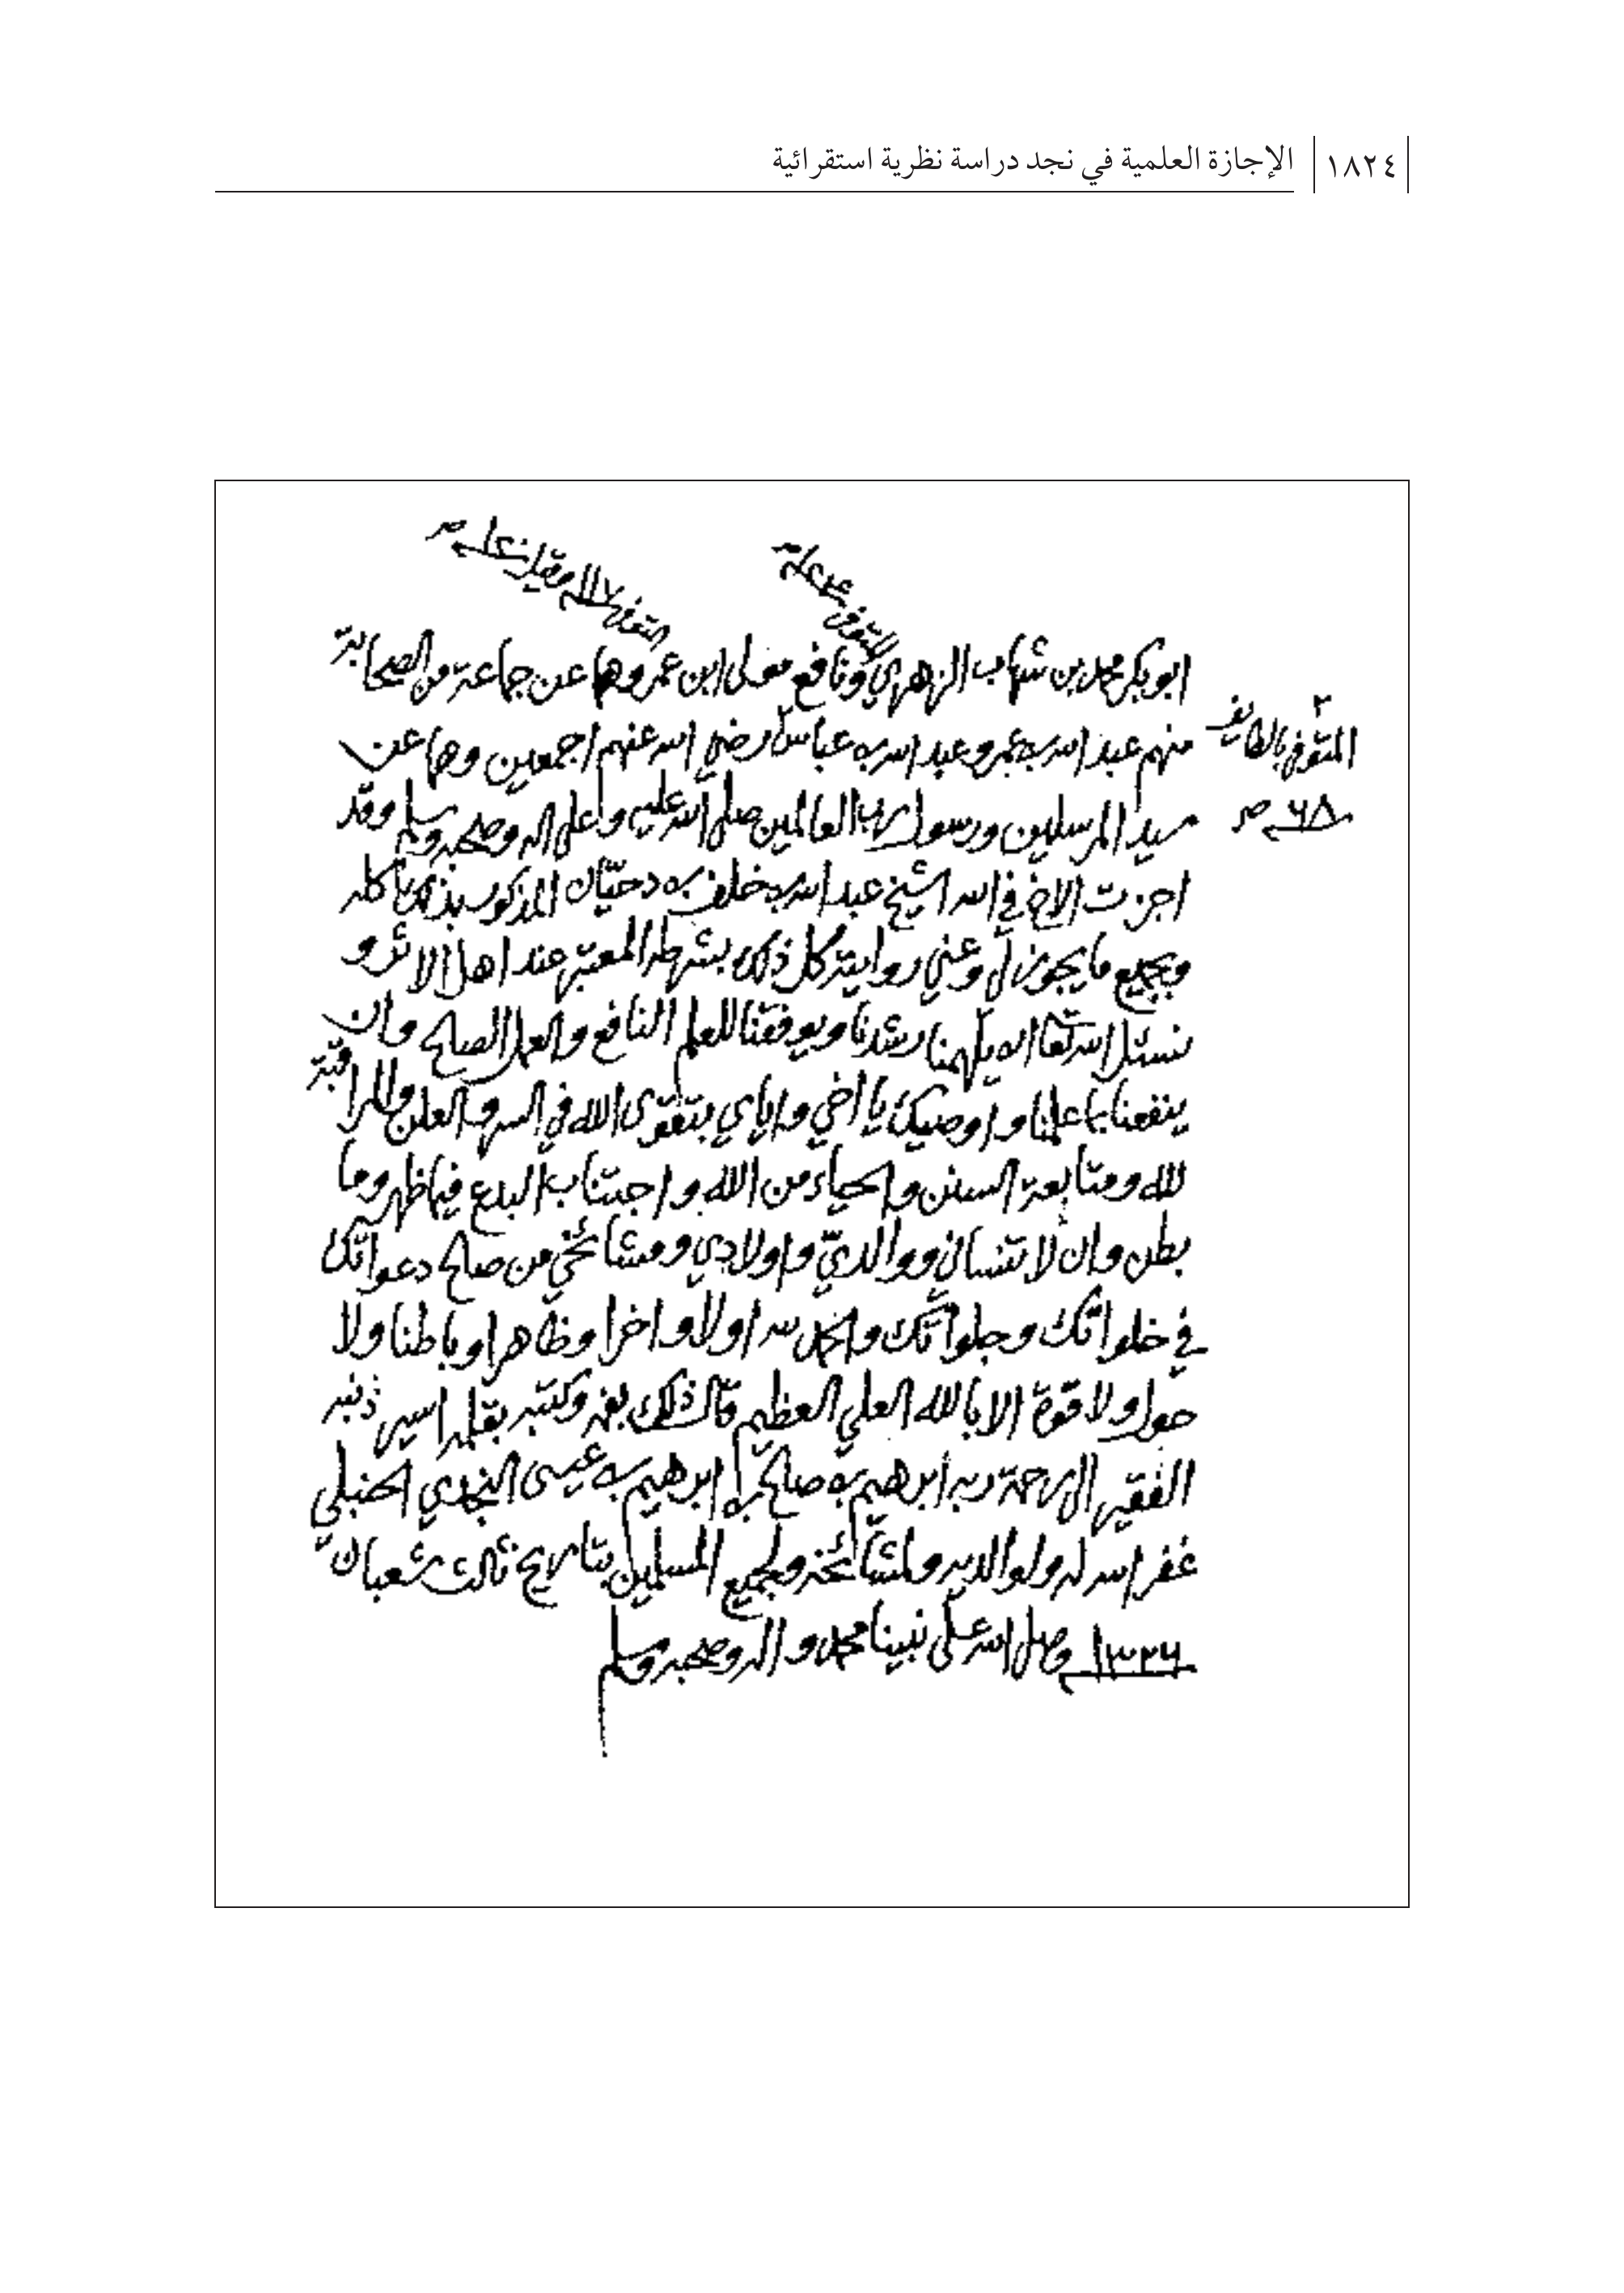 ١٨٢٤ الإجازة العلمية في نجد دراسة نظرية استقرائية
المتوفى سنة
المتوفى سنة ١١٧ وقيل سنة
ابو بكر محمد بن شهاب الزهري ونافع مولى ابن عمر وهما عن جماعة من الصحابة
منهم عبد الله بن عمر وعبد الله بن عباس رضي الله عنهم اجمعين وهما عن
المتوفى بالطايف
سنة ٦٨
سيد المرسلين ورسول رب العالمين صلى الله عليه وعلى اله وصحبه وسلم وقد
اجزت الاخ في الله الشيخ عبد الله بن خلف بن دحيّان المذكور بذلك كله
وبجميع ما يجوز لي وعني روايته كل ذلك بشرطه المعتبر عند اهل الاثر و
نسئل الله تعا ان يلهمنا رشدنا ويوفقنا للعلم النافع والعمل الصالح وان
ينفعنا بما علمنا واوصيك يا اخي واياي بتقوى الله في السر والعلن والمراقبة
لله ومتابعة السنن والحياء من الله واجتناب البدع فيما ظهر وما
بطن وان لا تنساني ووالديّ واولادي ومشائخي من صالح دعواتك
في خلواتك وجلواتك والحمد لله اولا واخرا وظاهرا وباطنا ولا
حول ولا قوة الا بالله العلي العظيم قال ذلك بفمه وكتبه بقلمه اسير ذنبه
الفقير الى رحمة ربه ابرهيم بن صالح بن ابرهيم بن عيسى النجدي الحنبلي
غفر الله له ولوالديه ولمشائخه ولجميع المسلمين بتاريخ ثالث شعبان
١٣٢٤ وصلى الله على نبينا محمد واله وصحبه وسلم